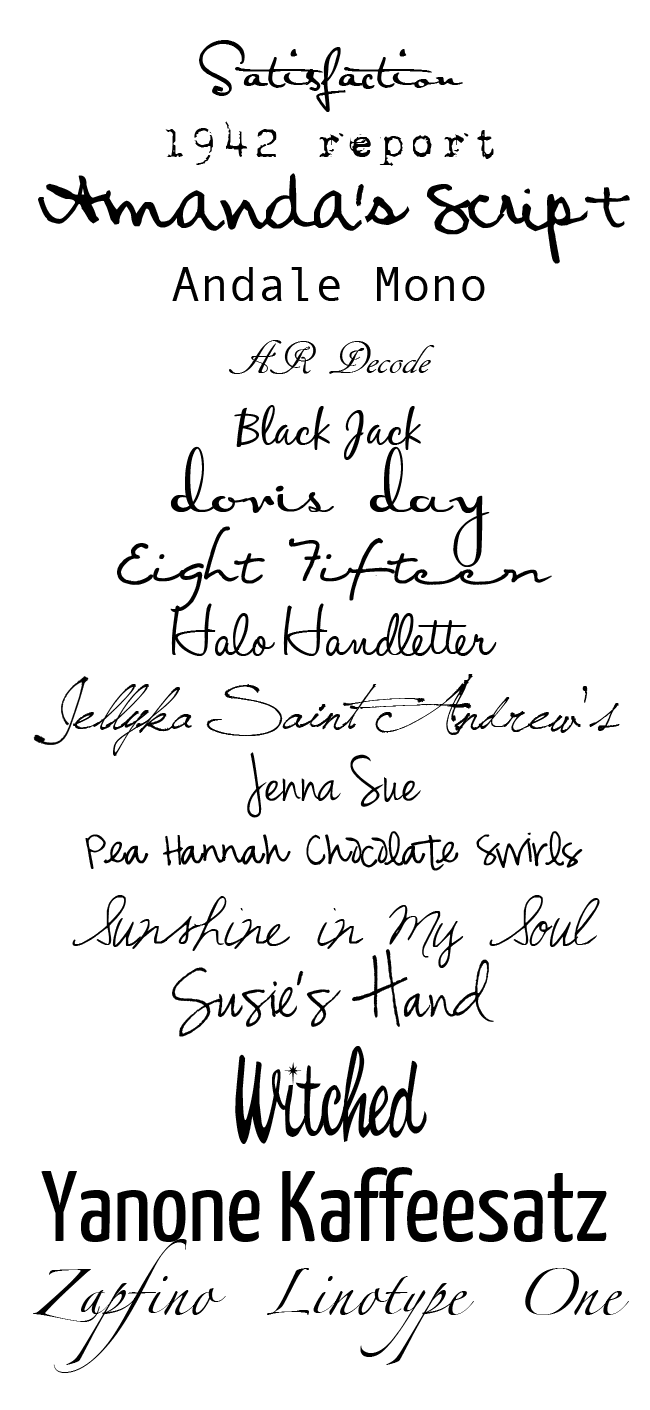 Satisfaction
1942 report
Amanda's Script
Andale Mono
AR Decode
Black Jack
doris day
Eight Fifteen
Halo Handletter
Jellyka Saint Andrew's
Jenna Sue
Pea Hannah Chocolate Swirls
Sunshine in My Soul
Susie's Hand
Witched
Yanone Kaffeesatz
Zapfino Linotype One